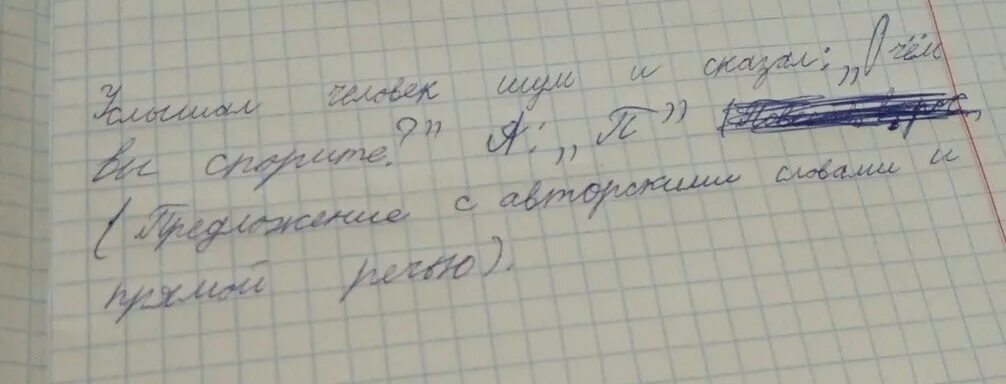 Услышал человек шум и сказал: „О чём
вы спорите?" А: „П"
(Предложение с авторскими словами и
прямой речью).